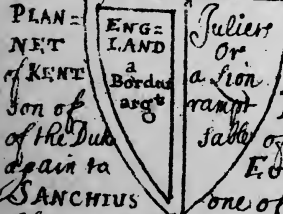 PLAN=
NET
of KENT
son of
of the Duk
again to
SANCHIUS
ENG=
LAND
a
Bordur
argt
Juliers
Or
a Lion
rampt
sable
one of